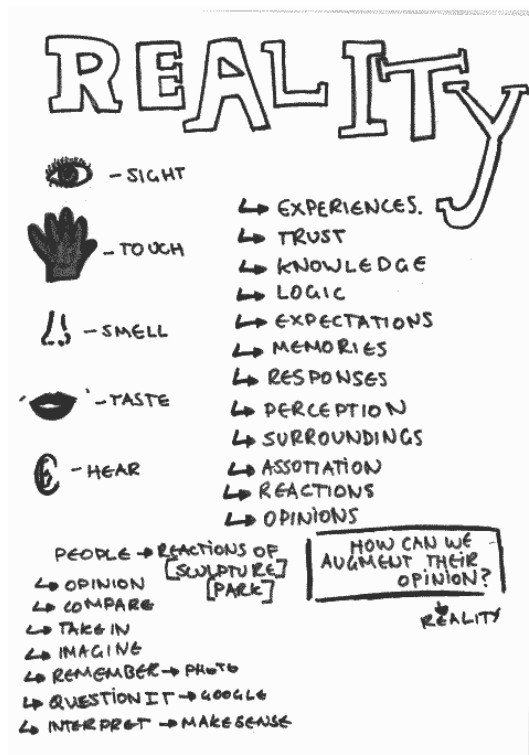 REALITY
- SIGHT
- TOUCH
- SMELL
- TASTE
- HEAR
↳ EXPERIENCES.
↳ TRUST
↳ KNOWLEDGE
↳ LOGIC
↳ EXPECTATIONS
↳ MEMORIES
↳ RESPONSES
↳ PERCEPTION
↳ SURROUNDINGS
↳ ASSOTIATION
↳ REACTIONS
↳ OPINIONS
PEOPLE → REACTIONS OF
[SCULPTURE]
[PARK]
↳ OPINION
↳ COMPARE
↳ TAKE IN
↳ IMAGINE
↳ REMEMBER → PHOTO
↳ QUESTION IT → GOOGLE
↳ INTERPRET → MAKE SENSE
HOW CAN WE
AUGMENT THEIR
OPINION?
REALITY